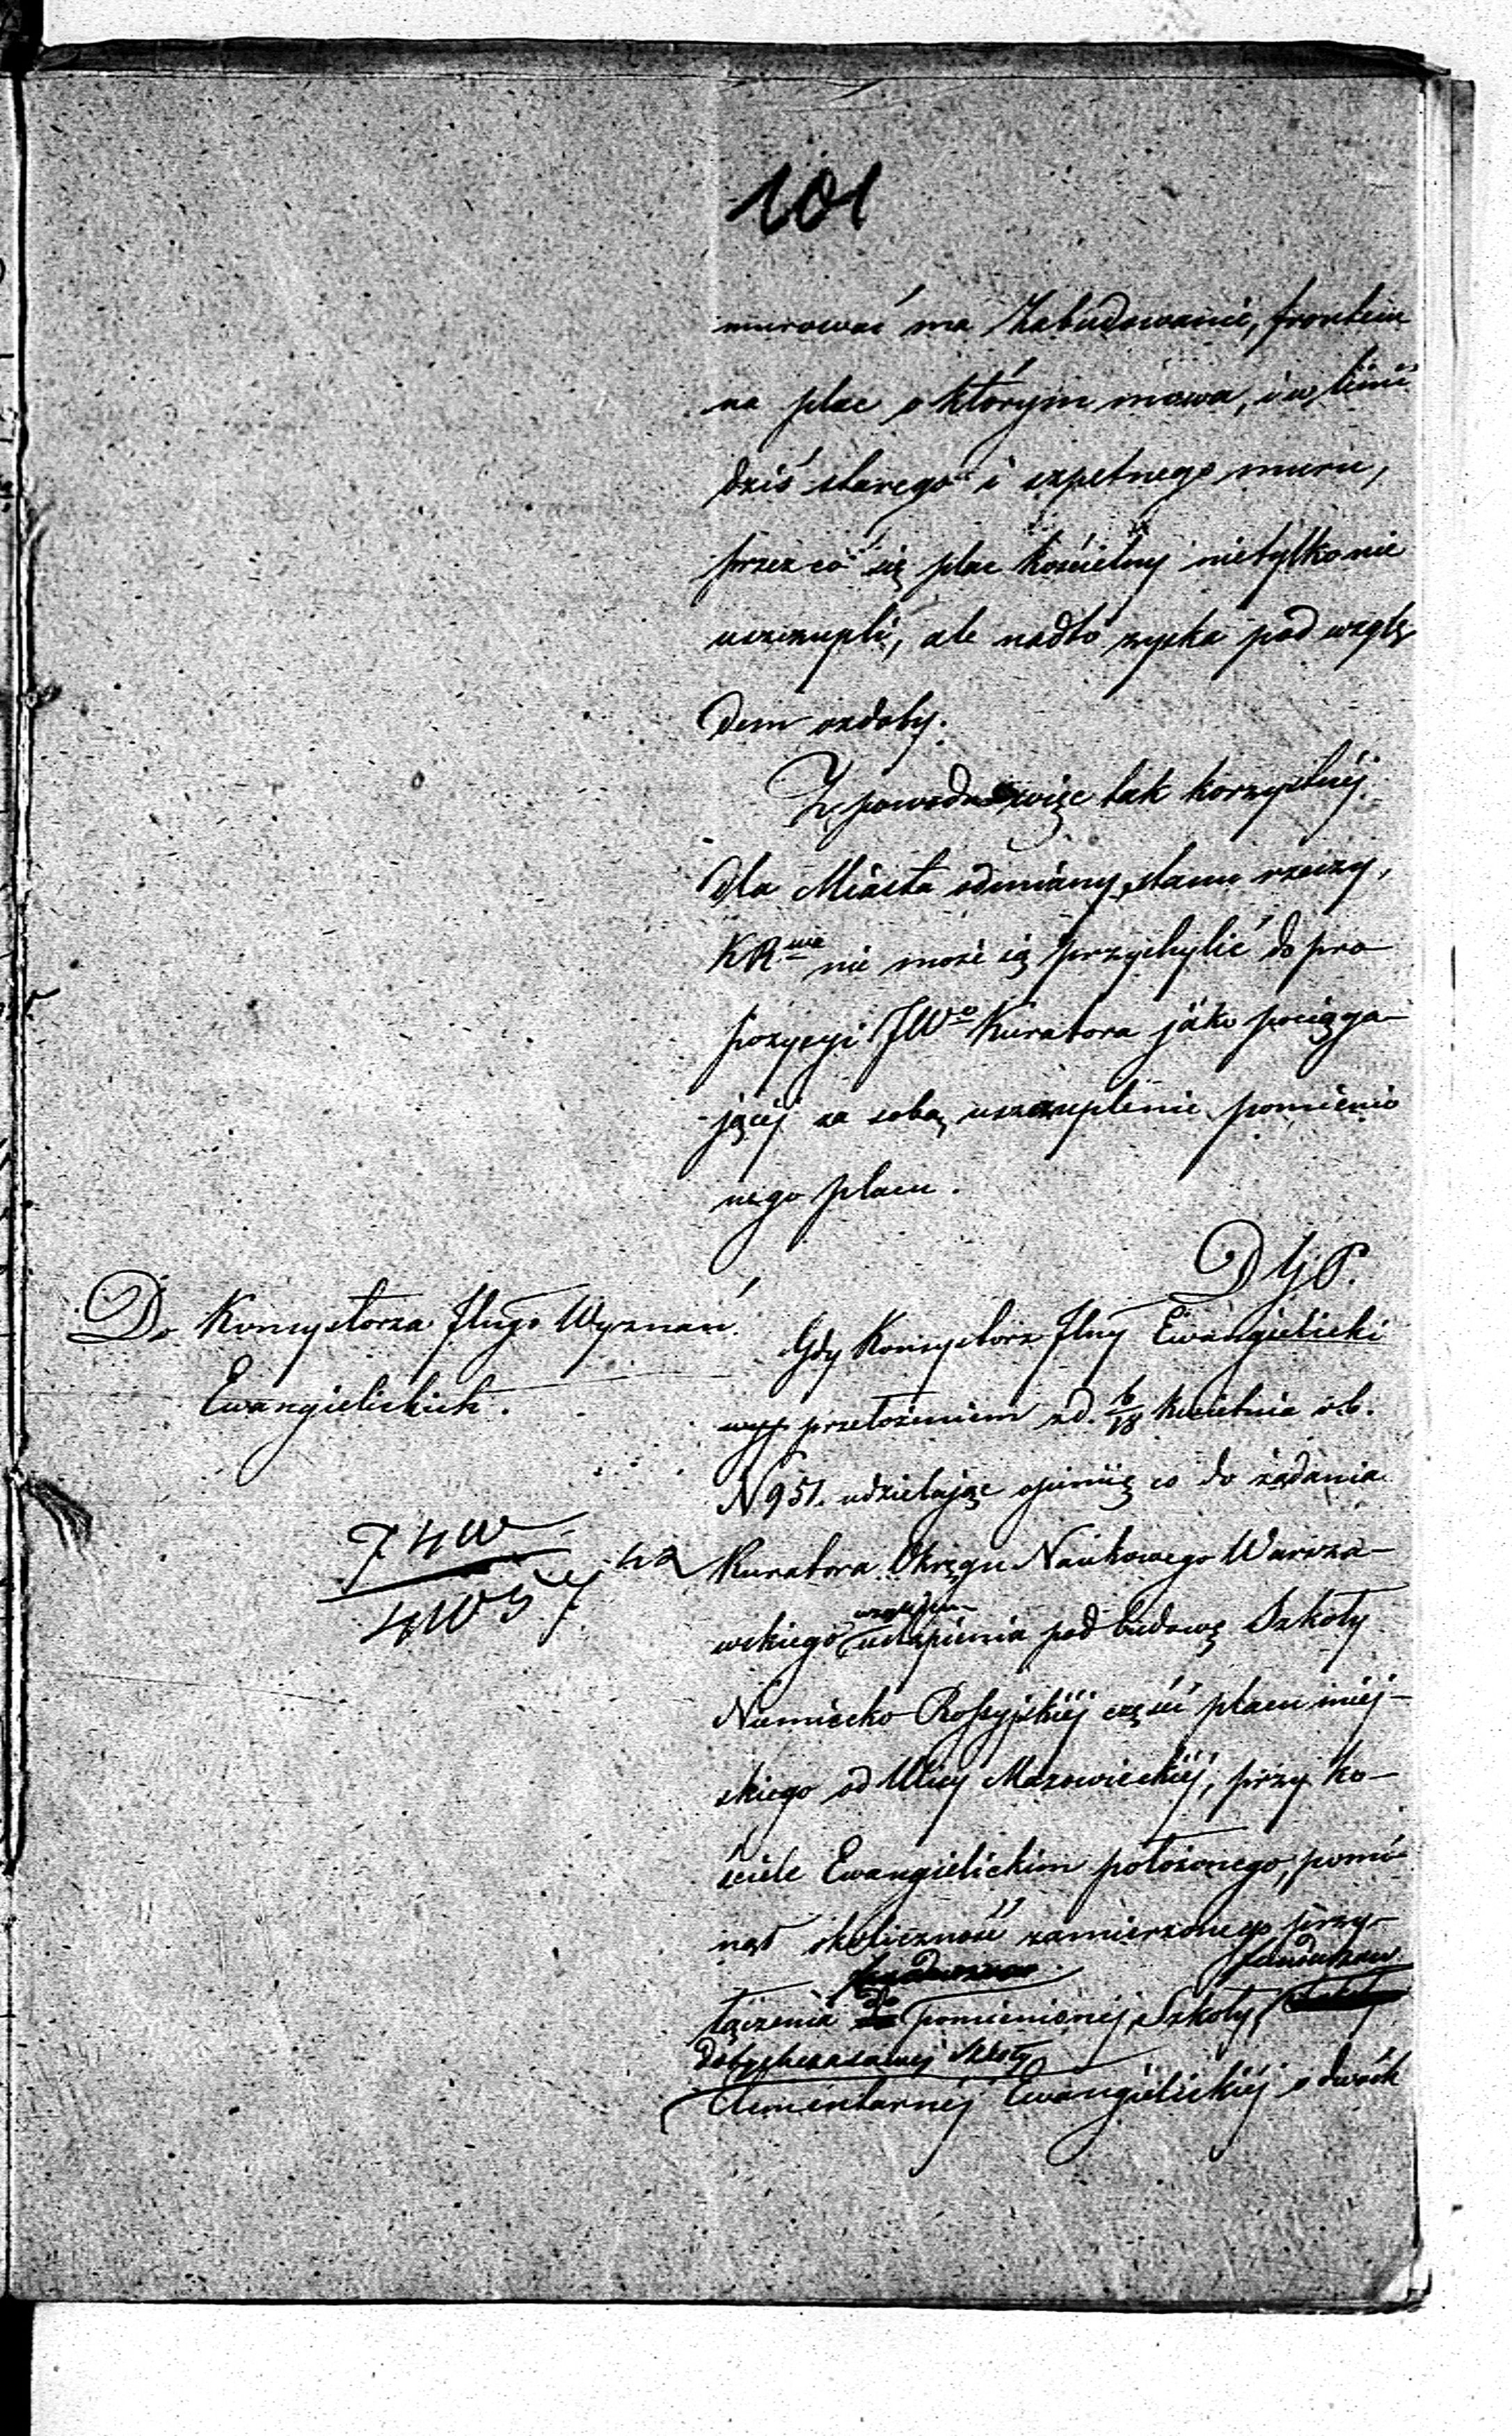 101
murować ma Zabudowanie, frontem
na plac o którym mowa, i w linii
dziś starego i szpetnego muru,
przez co się plac kościelny nietylko nie
uszczupli, ale nadto zyska pod wzglę
dem ozdoby.
Z powodu więc tak korzystnéj
dla Miasta odmiany stanu rzeczy,
KRwa nie może się przychylić do pro
pozycyi JWo Kuratora jako pociąga-
jącéj za sobą uszczuplenie pomienio
nego placu.
DGP.
Do Konsystorza Jlngo Wyznań
Ewangielickich.
Gdy Konsystorz Jlny Ewangielicki
przełożeniem z d. 6/18 Kwietnia r.b.
N 951. udzielając opinią co do żądania
Kuratora Okręgu Naukowego Warsza-
wskiego względem ustąpienia pod budowę Szkoły
Niemiecko-Rossyjskiéj część placu miej-
skiego od Ulicy Mazowieckiéj, przy ko-
ściele Ewangielickim położonego, pomi-
nął okoliczność zamierzonego przy-
łączenia do pomienionéj Szkoły,
dotychczasowéj Szkoły
Elementarnéj Ewangielickiéj o dwóch